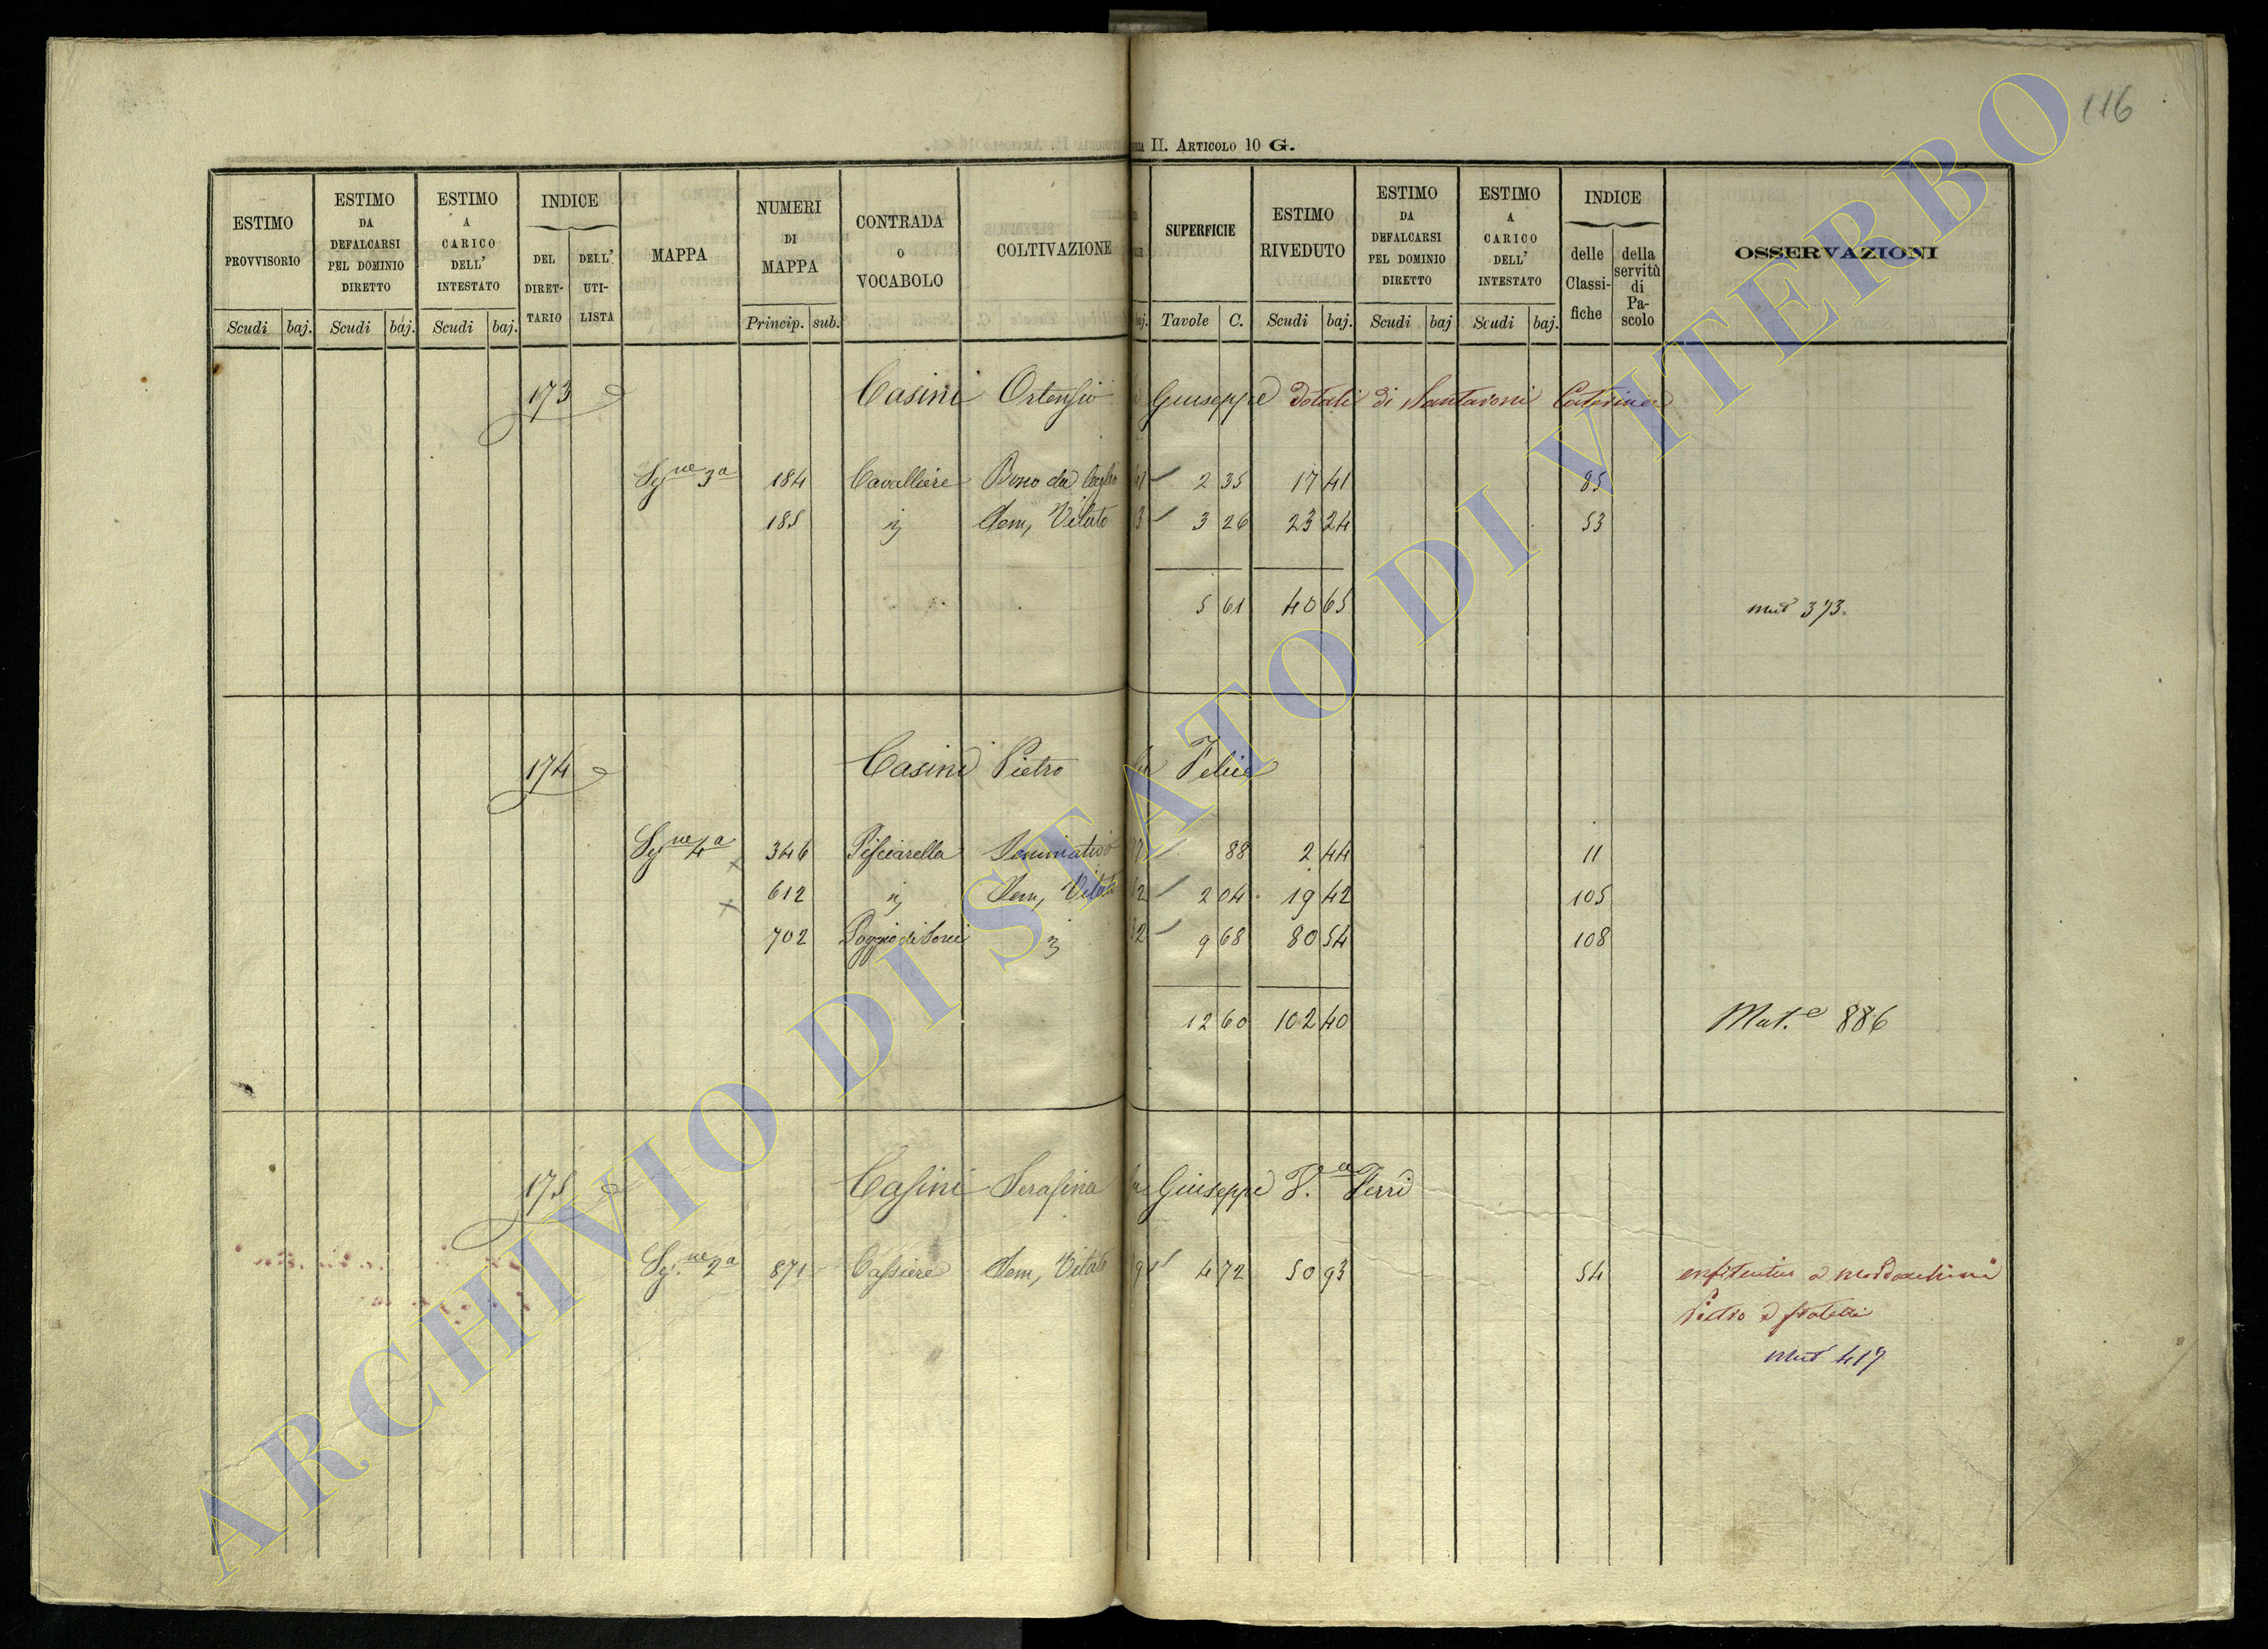 116
II. Articolo 10 G.
ESTIMO PROVVISORIO
ESTIMO DA DEFALCARSI PEL DOMINIO DIRETTO
ESTIMO A CARICO DELL' INTESTATO
INDICE
DEL DIRETTARIO
DELL' UTILISTA
MAPPA
NUMERI DI MAPPA
CONTRADA O VOCABOLO
COLTIVAZIONE
SUPERFICIE
ESTIMO RIVEDUTO
ESTIMO DA DEFALCARSI PEL DOMINIO DIRETTO
ESTIMO A CARICO DELL' INTESTATO
INDICE
delle Classifiche
della servitù di Pascolo
OSSERVAZIONI
Scudi baj. Scudi baj. Scudi baj. Princip. sub. baj. Tavole C. Scudi baj. Scudi baj Scudi baj.
173 Casini Ortensio Giuseppe dotali di Santaroni Caterina
Sez.ne 3a 184 Cavalliere Bosco da 41 2 35 17 41 85
185 Sem, Vitato 3 3 26 23 24 53
5 61 40 65 mut 373.
174 Casini Pietro fu Felice
Sez.ne 4a 346 Pisciarella Seminativo 88 2 44 11
612 Sem, Vitato 2 04 19 42 105
702 9 68 80 54 108
12 60 102 40 Mut.e 886
175 Casini Serafina fu Giuseppe V.a Ferri
Sez.ne 2a 871 Cassiere Sem, Vitato 9 4 72 50 93 54 enfiteutica a
Pietro e fratelli
mut 417
ARCHIVIO DI STATO DI VITERBO